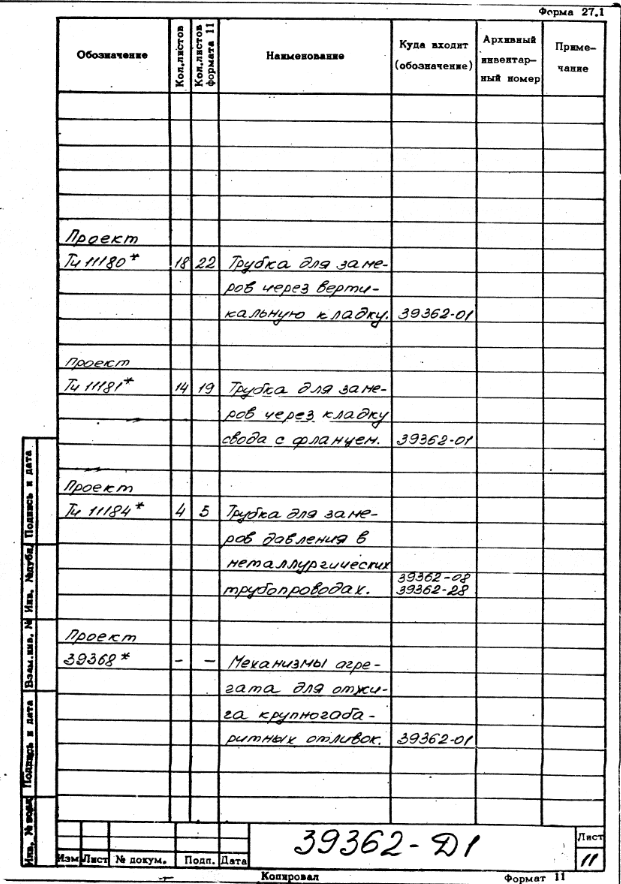 Форма 27.1
Обозначение
Кол.листов
Кол.листов
формата 11
Наименование
Куда входит
(обозначение)
Архивный
инвентар-
ный номер
Приме-
чание
Проект
Ти 11180* 18 22 Трубка для заме-
ров через верти-
кальную кладку. 39362-01
Проект
Ти 11181* 14 19 Трубка для заме-
ров через кладку
свода с фланцем. 39362-01
Проект
Ти 11184* 4 5 Трубка для заме-
ров давления в
металлургических
39362-08
трубопроводах. 39362-28
Проект
39368* - - Механизмы агре-
гата для отжи-
га крупногаба-
ритных отливок. 39362-01
Инв. № подл. Подпись и дата Взам.инв. № Инв. №дубл. Подпись и дата
39362-Д1
Лист
11
Изм Лист № докум. Подп. Дата
Копировал Формат 11